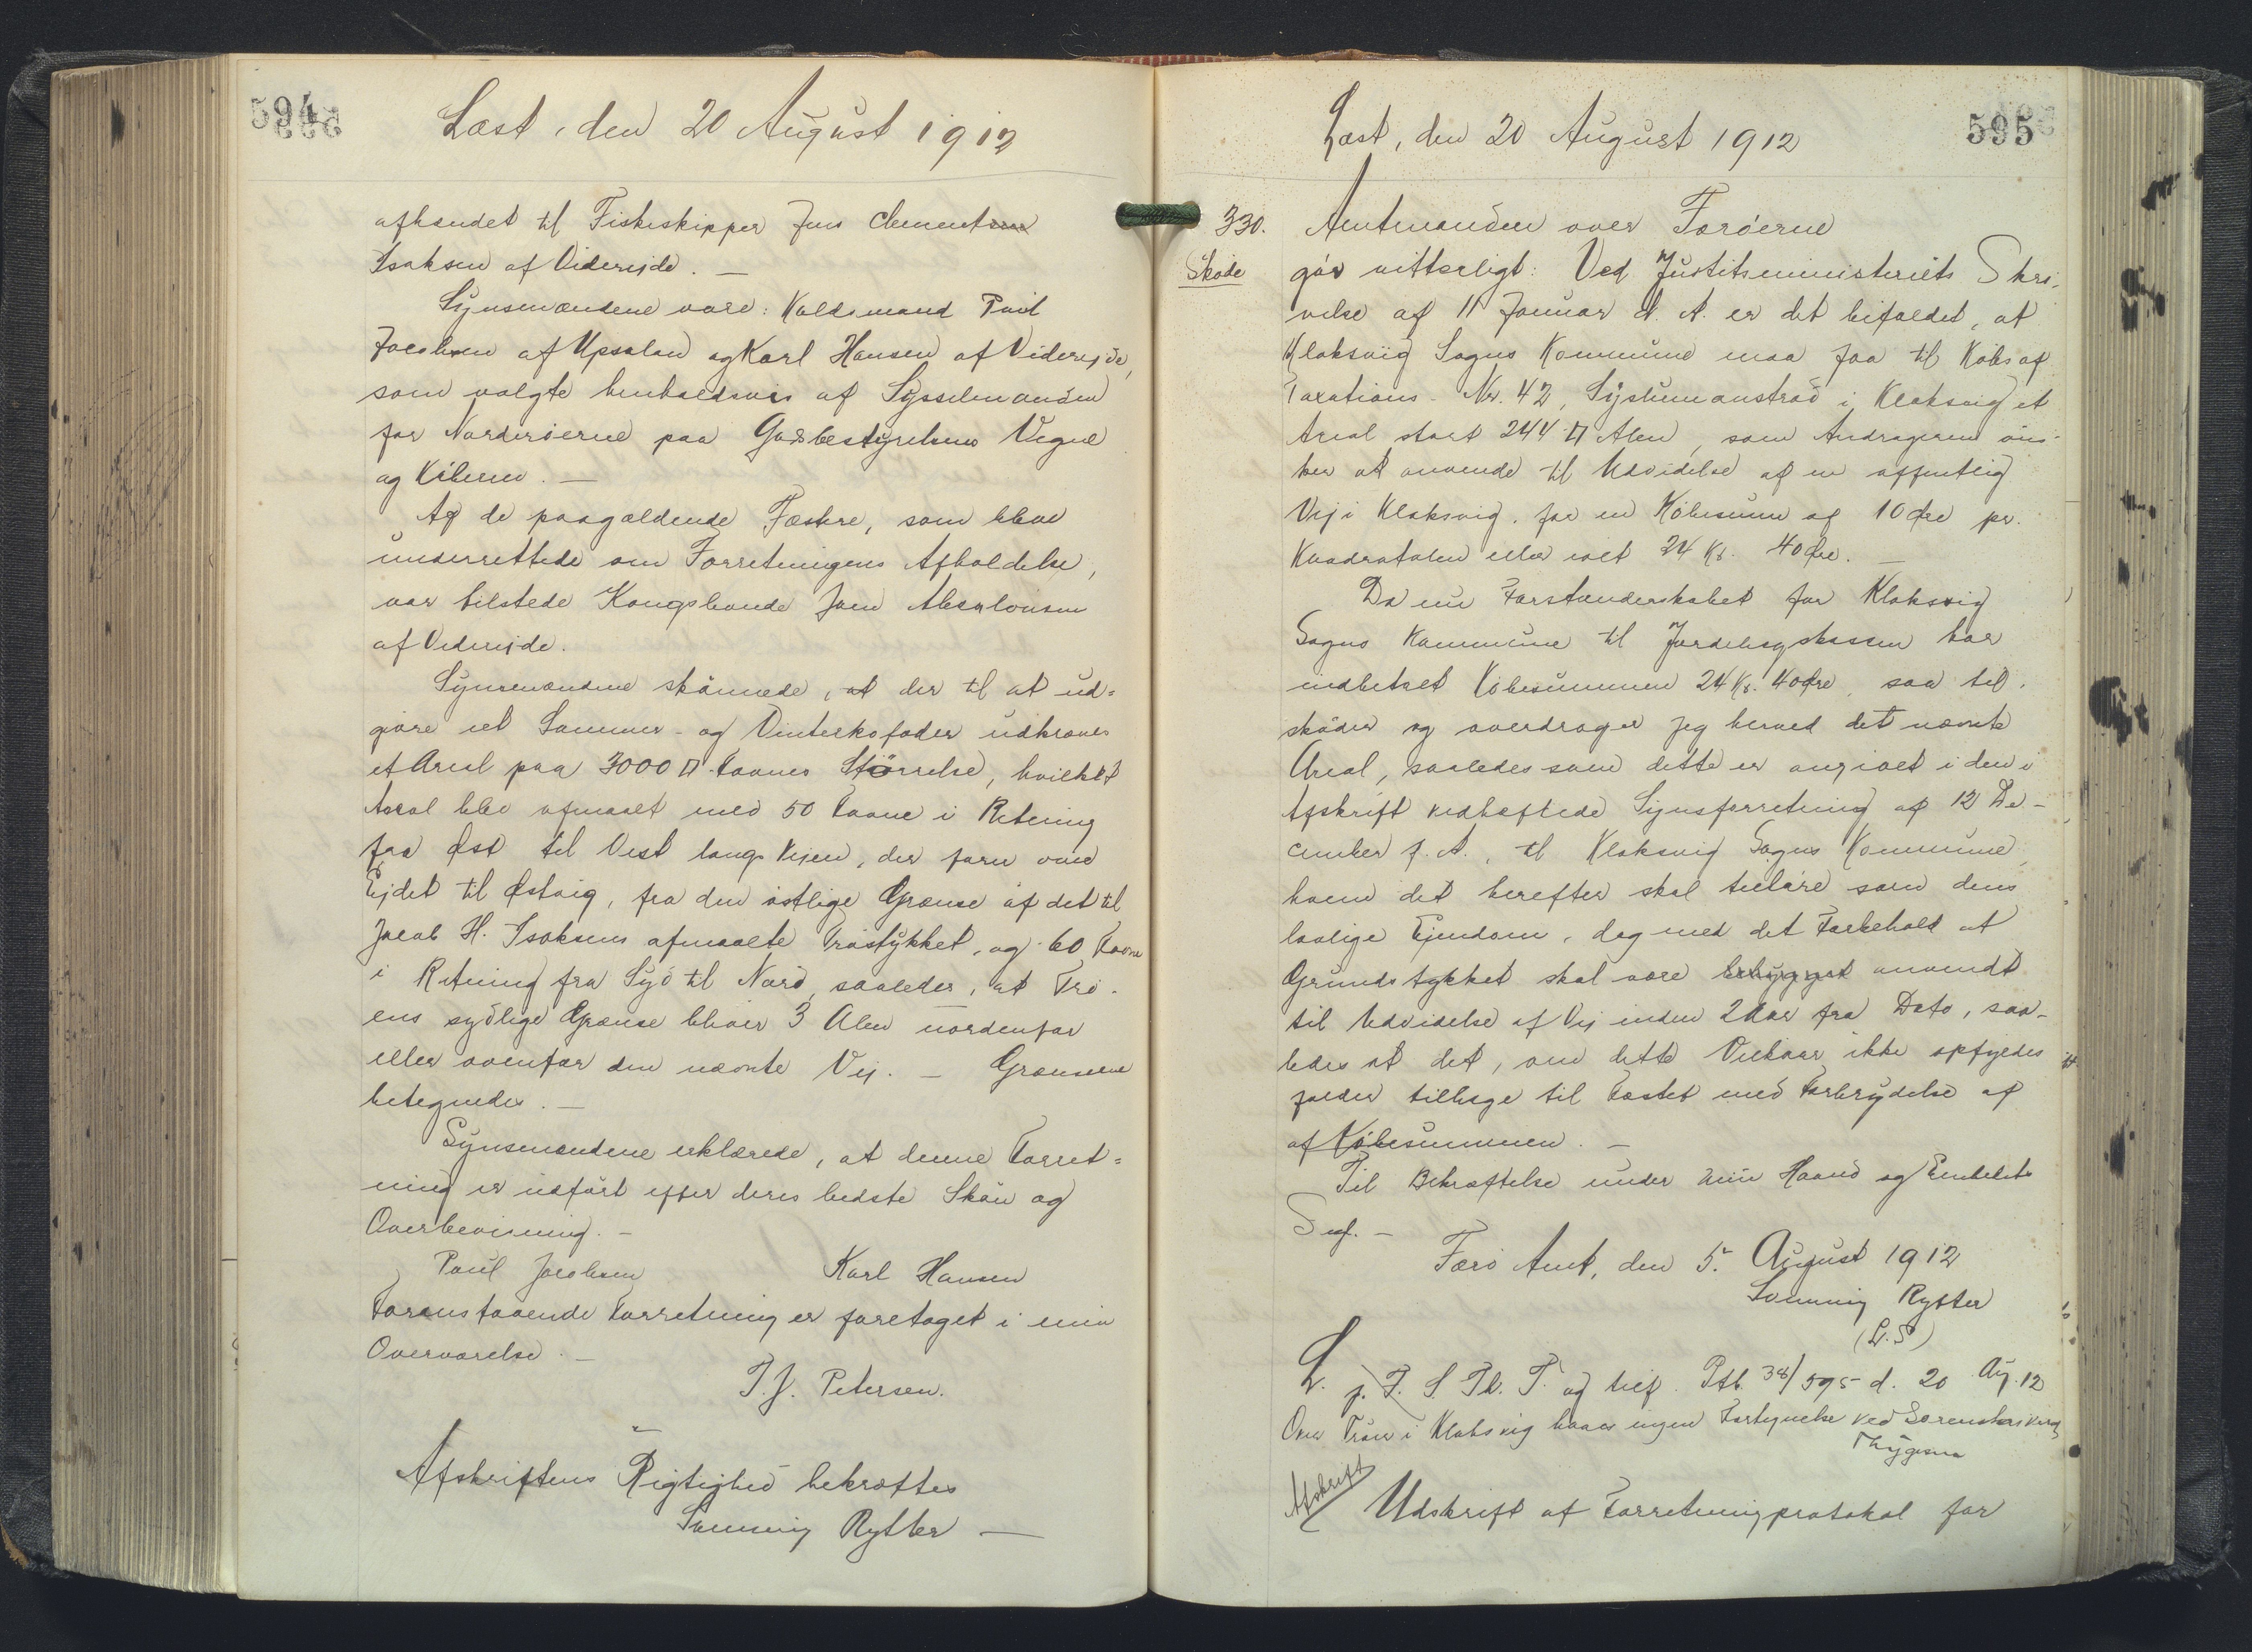 594
Læst, den 20 August 1912
afhændet til Fiskeskipper Jens Clementsen
Isaksen af Viderejde. —
Synsmændene vare: Kaldsmand Poul
Jacobsen af Upsalen og Karl Hansen af Viderejde,
som valgte henholdsvis af Sysselmanden
for Norderöerne paa Godsbestyrelsens Vegne
og Köberen. —
Af de paagældende Fæstere, som bleve
underrettede om Forretningens Afholdelse,
var tilstede Kongsbonde Joen Absalonsen
af Viderejde.
Synsmændene skönnede, at der til at ud=
gjøre et Sommer- og Vinterkofoder udkræves
et Areal paa 3000 □ Favnes Störrelse, hvilket
Areal blev afmaalt med 50 Favne i Retning
fra Øst til Vest langs Vejen, der fører over
Ejdet til Østvig, fra den östlige Grænse af det til
Jacob H. Isaksens afmaalte Tröstykket, og 60 Favne
i Retning fra Syd til Nord, saaledes, at Trö-
ens sydlige Grænse bliver 3 Alen nordenfor
eller ovenfor den nævnte Vej. — Grænserne
betegnedes. —
Synsmændene erklærede, at denne Forret=
ning er udført efter deres bedste Skön og
Overbevisning. —
Poul Jacobsen Karl Hansen
Foranstaaende Forretning er foretaget i min
Overværelse. —
T. J. Petersen.
Afskriftens Rigtighed bekræftes
Svenning Rytter —
Læst, den 20 August 1912
595
330. Amtmanden over Færöerne
Sköde gör vitterligt: Ved Justitsministeriets Skri-
velse af 11 Januar d. A. er det bifaldet, at
Klaksvig Sogns Kommune maa faa til Köbs af
Taxations-Nr. 42, Sýslumanströð i Klaksvig et
Areal stort 244 □ Alen, som Andrageren öns-
ker at anvende til Udvidelse af en offentlig
Vej i Klaksvig, for en Köbesum af 10 Øre pr.
Kvadratalen eller ialt 24 Kr. 40 Øre. —
Da nu Forstanderskabet for Klaksvig
Sogns Kommune til Jordebogskassen har
indbetalt Köbesummen 24 Kr. 40 Øre, saa til-
sköder og overdrager jeg herved det nævnte
Areal, saaledes som dette er angivet i den i
Afskrift vedhæftede Synsforretning af 12 De-
cember f. A., til Klaksvig Sogns Kommune,
hvem det herefter skal tilhöre som dens
lovlige Ejendom, dog med det Forbehold at
Grundstykket skal være bebygget anvendt
til Udvidelse af Vej inden 2 Aar fra Dato, saa-
ledes at det, om dette Vilkaar ikke opfyldes
falder tilbage til Fæstet med Forbrydelse af
af Köbesummen. —
Til Bekræftelse under min Haand og Embedets
Segl. —
Færö Amt, den 5. August 1912
Svenning Rytter
(L.S)
L. p. F. S. Th. T. og tilf. Ptb. 38/595 d. 20 Aug. 12
Over Tröen i Klaksvig haves ingen Forsynelse ved Sorenskriveriet
Thygesen
Afskrift
Udskrift af Forretningsprotokol for